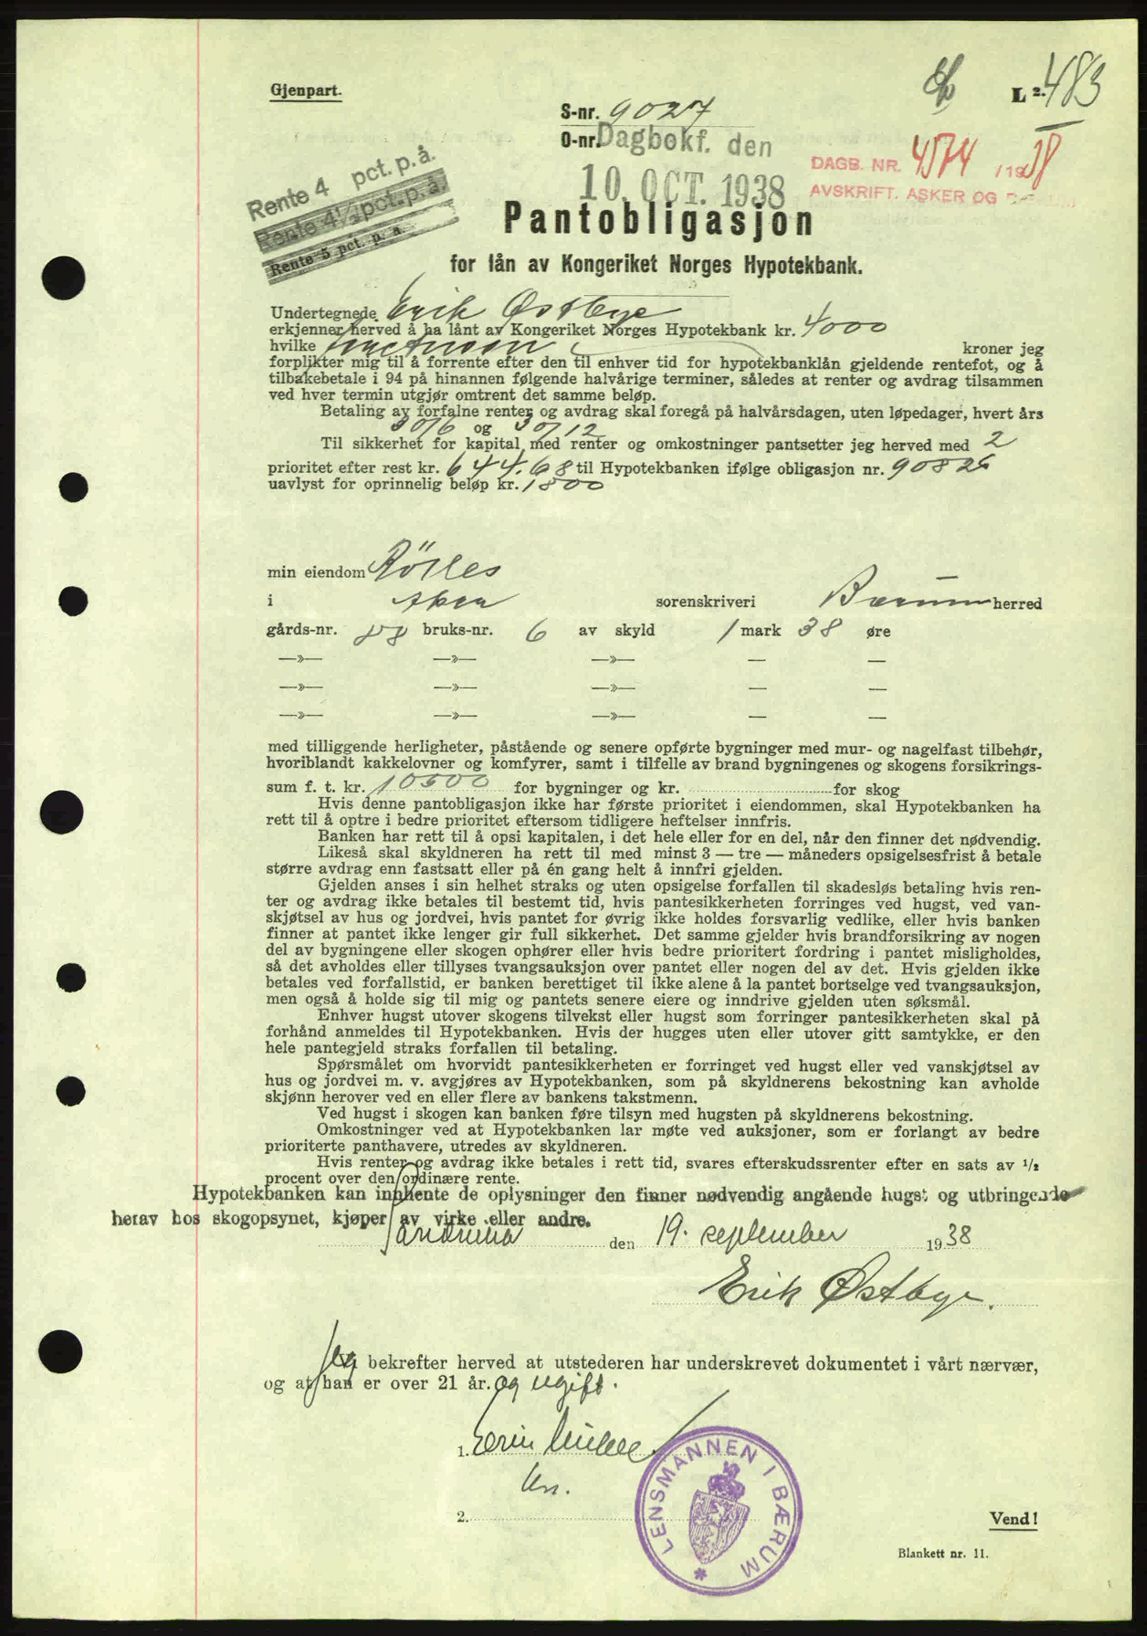 Gjenpart.
L 2. 483
S-nr. 9027
O-nr. Dagbokf. den
10. OCT. 1938
DAGB. NR. 4574 / 1938
AVSKRIFT. ASKER OG BÆRUM
Rente 4 pct. p. å.
Rente 4½ pct. p. å.
Rente 5 pct. p. a.
Pantobligasjon
for lån av Kongeriket Norges Hypotekbank.
Undertegnede Erik Østbye
erkjenner herved å ha lånt av Kongeriket Norges Hypotekbank kr. 4000
hvilke kroner jeg
forplikter mig til å forrente efter den til enhver tid for hypotekbanklån gjeldende rentefot, og å
tilbakebetale i 94 på hinannen følgende halvårige terminer, således at renter og avdrag tilsammen
ved hver termin utgjør omtrent det samme beløp.
Betaling av forfalne renter og avdrag skal foregå på halvårsdagen, uten løpedager, hvert års
30/6 og 30/12
Til sikkerhet for kapital med renter og omkostninger pantsetter jeg herved med 2
prioritet efter rest kr. 644.68 til Hypotekbanken ifølge obligasjon nr. 90826
uavlyst for oprinnelig beløp kr. 1800
min eiendom
i Aker sorenskriveri Bærum herred
gårds-nr. 88 bruks-nr. 6 av skyld 1 mark 38 øre
—»— —»— —»— — —
—»— —»— —»— — —
—»— —»— —»— — —
med tilliggende herligheter, påstående og senere opførte bygninger med mur- og nagelfast tilbehør,
hvoriblandt kakkelovner og komfyrer, samt i tilfelle av brand bygningenes og skogens forsikrings-
sum f. t. kr. 10500 for bygninger og kr. for skog
Hvis denne pantobligasjon ikke har første prioritet i eiendommen, skal Hypotekbanken ha
rett til å optre i bedre prioritet eftersom tidligere heftelser innfris.
Banken har rett til å opsi kapitalen, i det hele eller for en del, når den finner det nødvendig.
Likeså skal skyldneren ha rett til med minst 3 — tre — måneders opsigelsesfrist å betale
større avdrag enn fastsatt eller på én gang helt å innfri gjelden.
Gjelden anses i sin helhet straks og uten opsigelse forfallen til skadesløs betaling hvis ren-
ter og avdrag ikke betales til bestemt tid, hvis pantesikkerheten forringes ved hugst, ved van-
skjøtsel av hus og jordvei, hvis pantet for øvrig ikke holdes forsvarlig vedlike, eller hvis banken
finner at pantet ikke lenger gir full sikkerhet. Det samme gjelder hvis brandforsikring av nogen
del av bygningene eller skogen ophører eller hvis bedre prioritert fordring i pantet misligholdes,
så det avholdes eller tillyses tvangsauksjon over pantet eller nogen del av det. Hvis gjelden ikke
betales ved forfallstid, er banken berettiget til ikke alene å la pantet bortselge ved tvangsauksjon,
men også å holde sig til mig og pantets senere eiere og inndrive gjelden uten søksmål.
Enhver hugst utover skogens tilvekst eller hugst som forringer pantesikkerheten skal på
forhånd anmeldes til Hypotekbanken. Hvis der hugges uten eller utover gitt samtykke, er den
hele pantegjeld straks forfallen til betaling.
Spørsmålet om hvorvidt pantesikkerheten er forringet ved hugst eller ved vanskjøtsel av
hus og jordvei m. v. avgjøres av Hypotekbanken, som på skyldnerens bekostning kan avholde
skjønn herover ved en eller flere av bankens takstmenn.
Ved hugst i skogen kan banken føre tilsyn med hugsten på skyldnerens bekostning.
Omkostninger ved at Hypotekbanken lar møte ved auksjoner, som er forlangt av bedre
prioriterte panthavere, utredes av skyldneren.
Hvis renter og avdrag ikke betales i rett tid, svares efterskudssrenter efter en sats av ½
procent over den ordinære rente.
Hypotekbanken kan innhente de oplysninger den finner nødvendig angående hugst og utbringende
herav hos skogopsynet, kjøper av virke eller andre.
Sandvika den 19. september 1938
Erik Østbye.
Jeg bekrefter herved at utstederen har underskrevet dokumentet i vårt nærvær,
og at han er over 21 år. og ugift.
1.
2.
LENSMANNEN I BÆRUM
Vend!
Blankett nr. 11.